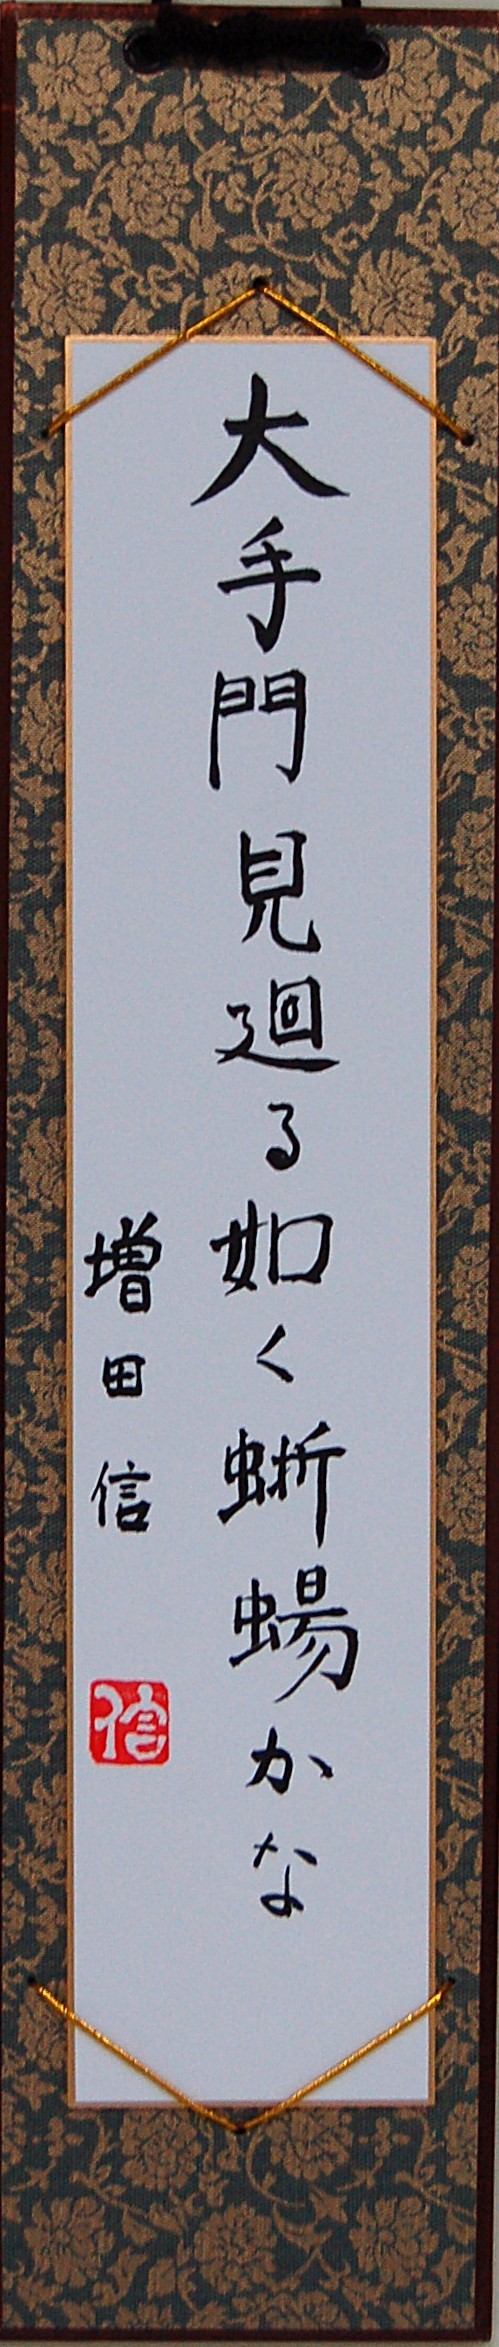 大手門見廻る如く蜥蜴かな
増田信
信